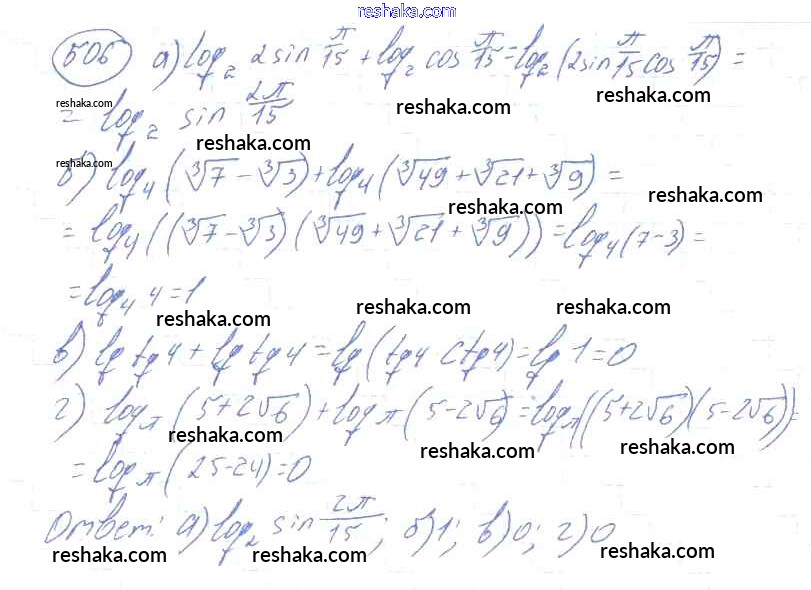 reshaka.com
506 а) log₂ 2 sin π/15 + log₂ cos π/15 = log₂ (2 sin π/15 cos π/15) =
reshaka.com reshaka.com reshaka.com
= log₂ sin 2π/15
reshaka.com reshaka.com
б) log₄ (∛7 − ∛3) + log₄ (∛49 + ∛21 + ∛9) =
reshaka.com reshaka.com reshaka.com
= log₄ ((∛7 − ∛3) (∛49 + ∛21 + ∛9)) = log₄ (7 − 3) =
= log₄ 4 = 1
reshaka.com reshaka.com reshaka.com
в) lg tg 4 + lg tg 4 = lg (tg 4 ctg 4) = lg 1 = 0
г) log_π (5 + 2√6) + log_π (5 − 2√6) = log_π ((5 + 2√6) (5 − 2√6)) =
reshaka.com reshaka.com reshaka.com
= log_π (25 − 24) = 0
Ответ: а) log₂ sin 2π/15; б) 1; в) 0; г) 0
reshaka.com reshaka.com reshaka.com reshaka.com